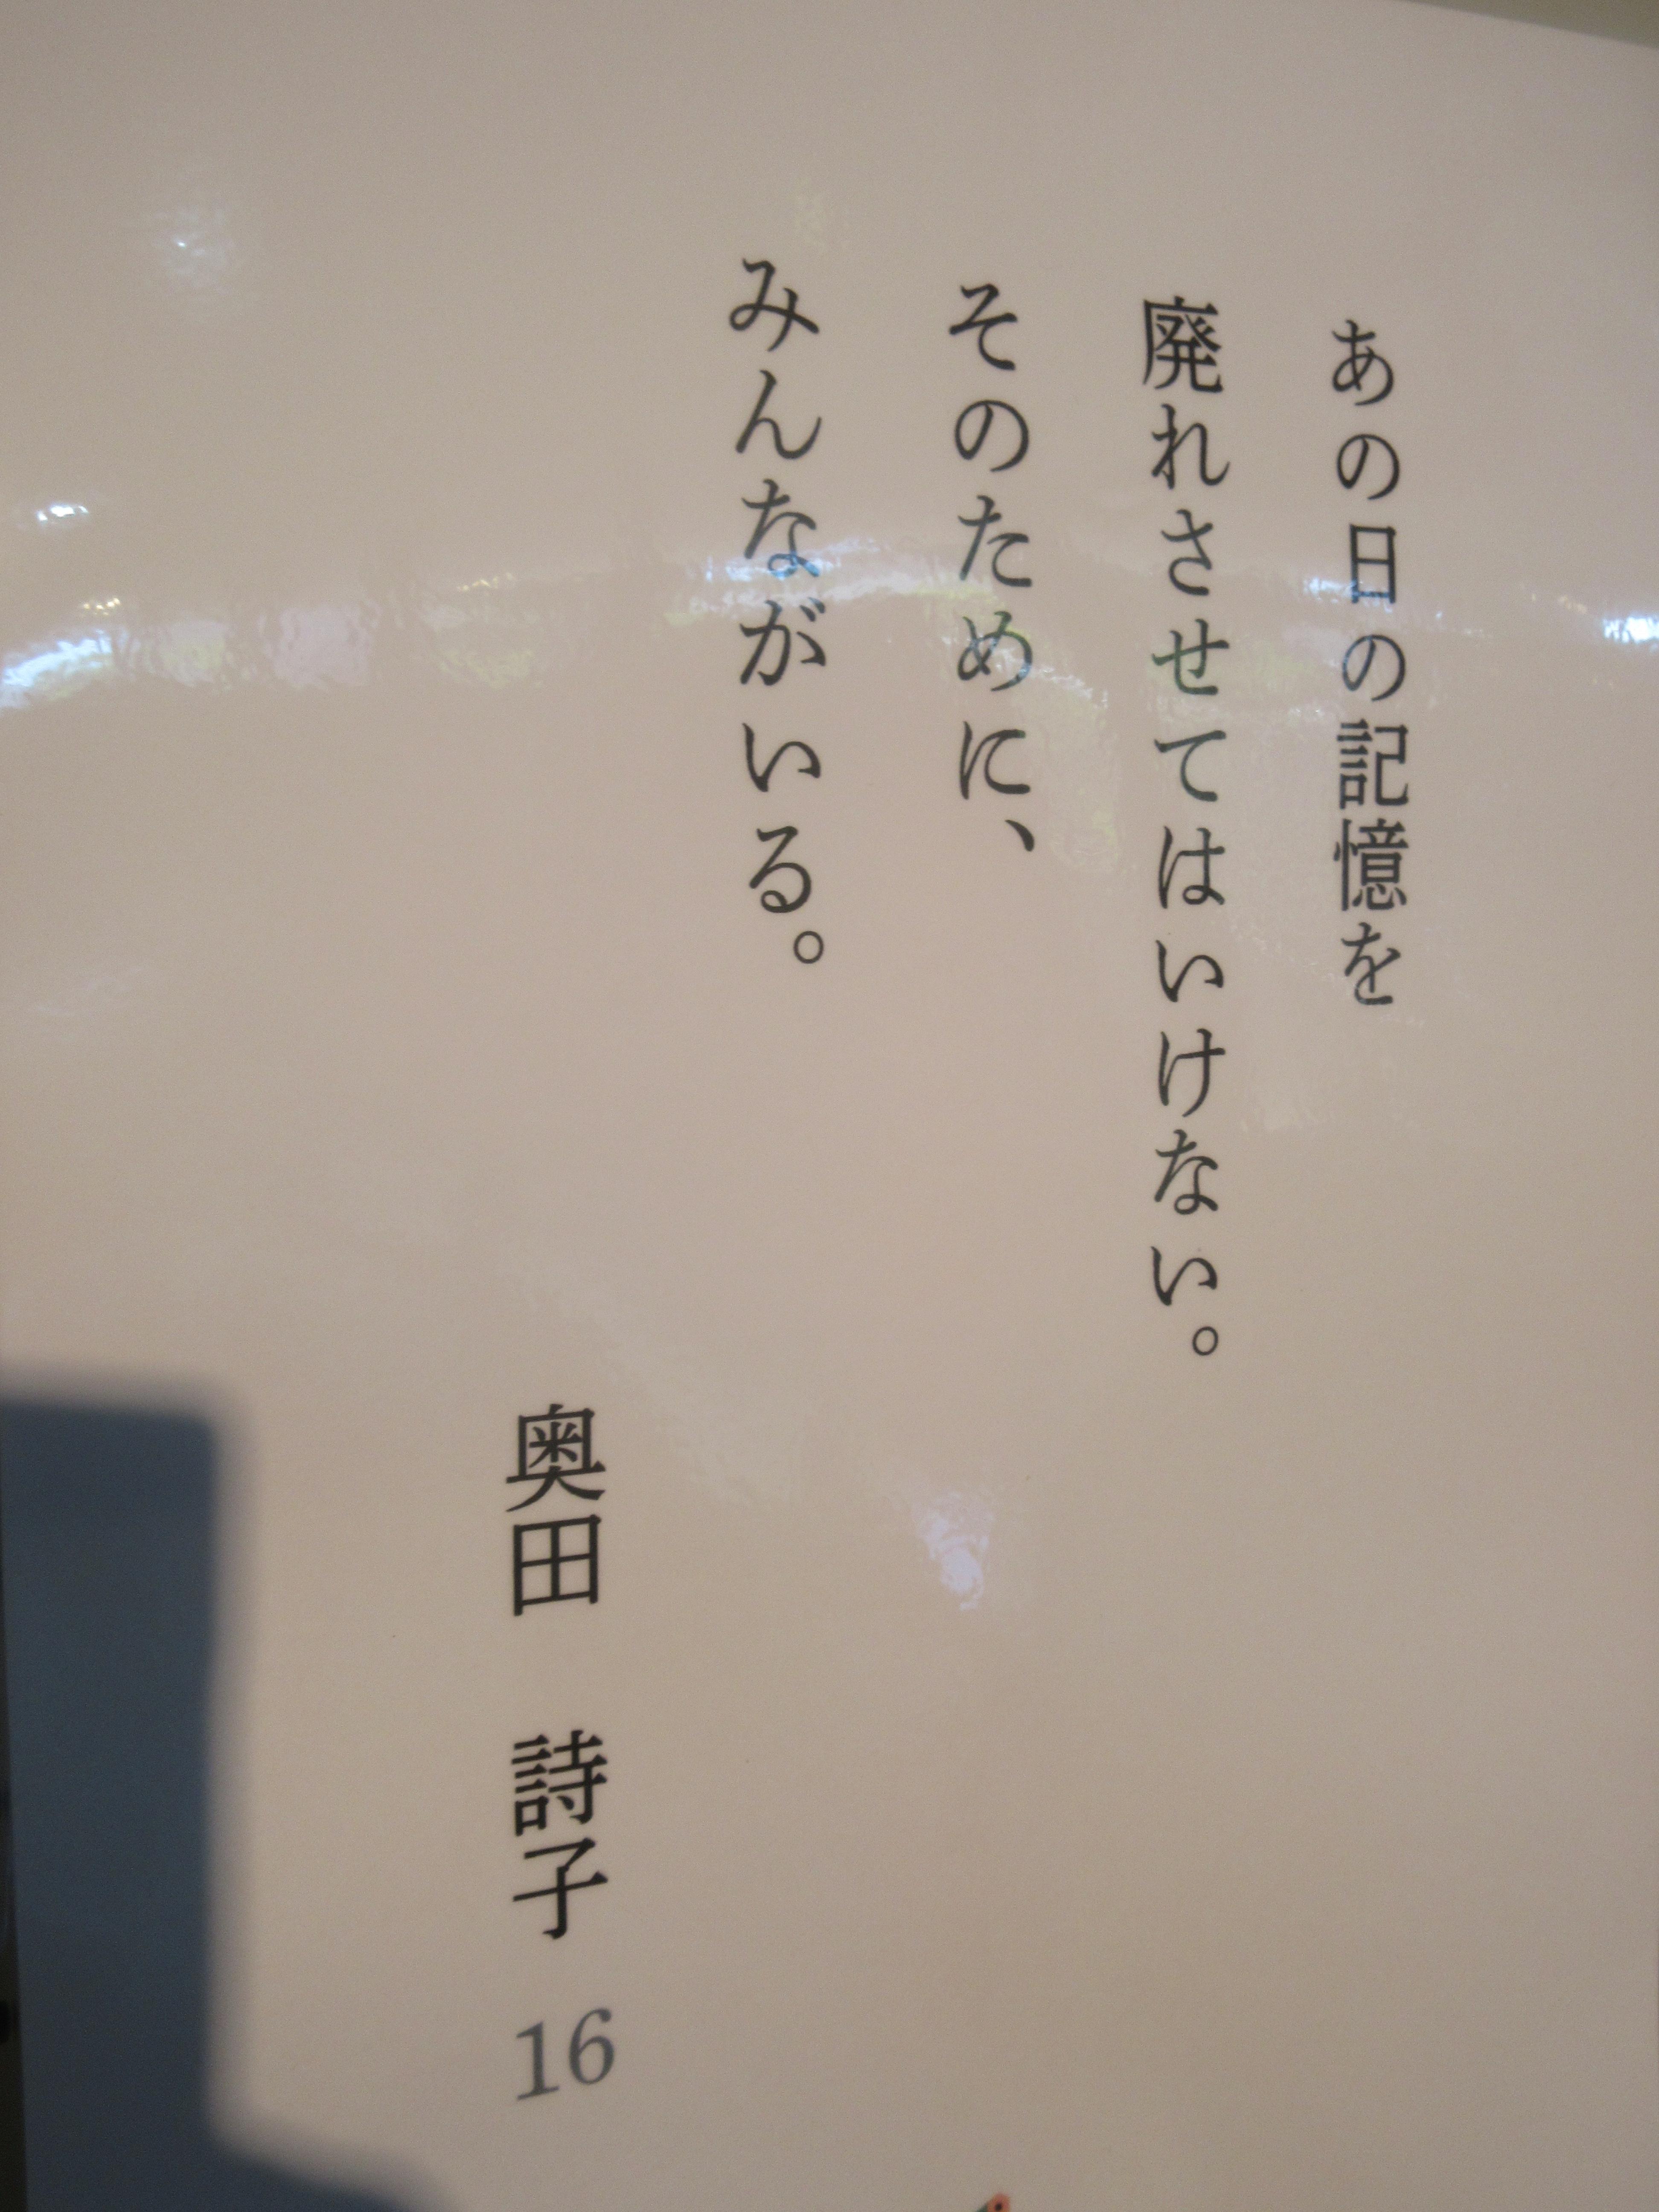 あの日の記憶を
廃れさせてはいけない。
そのために、
みんながいる。
奥田 詩子 16